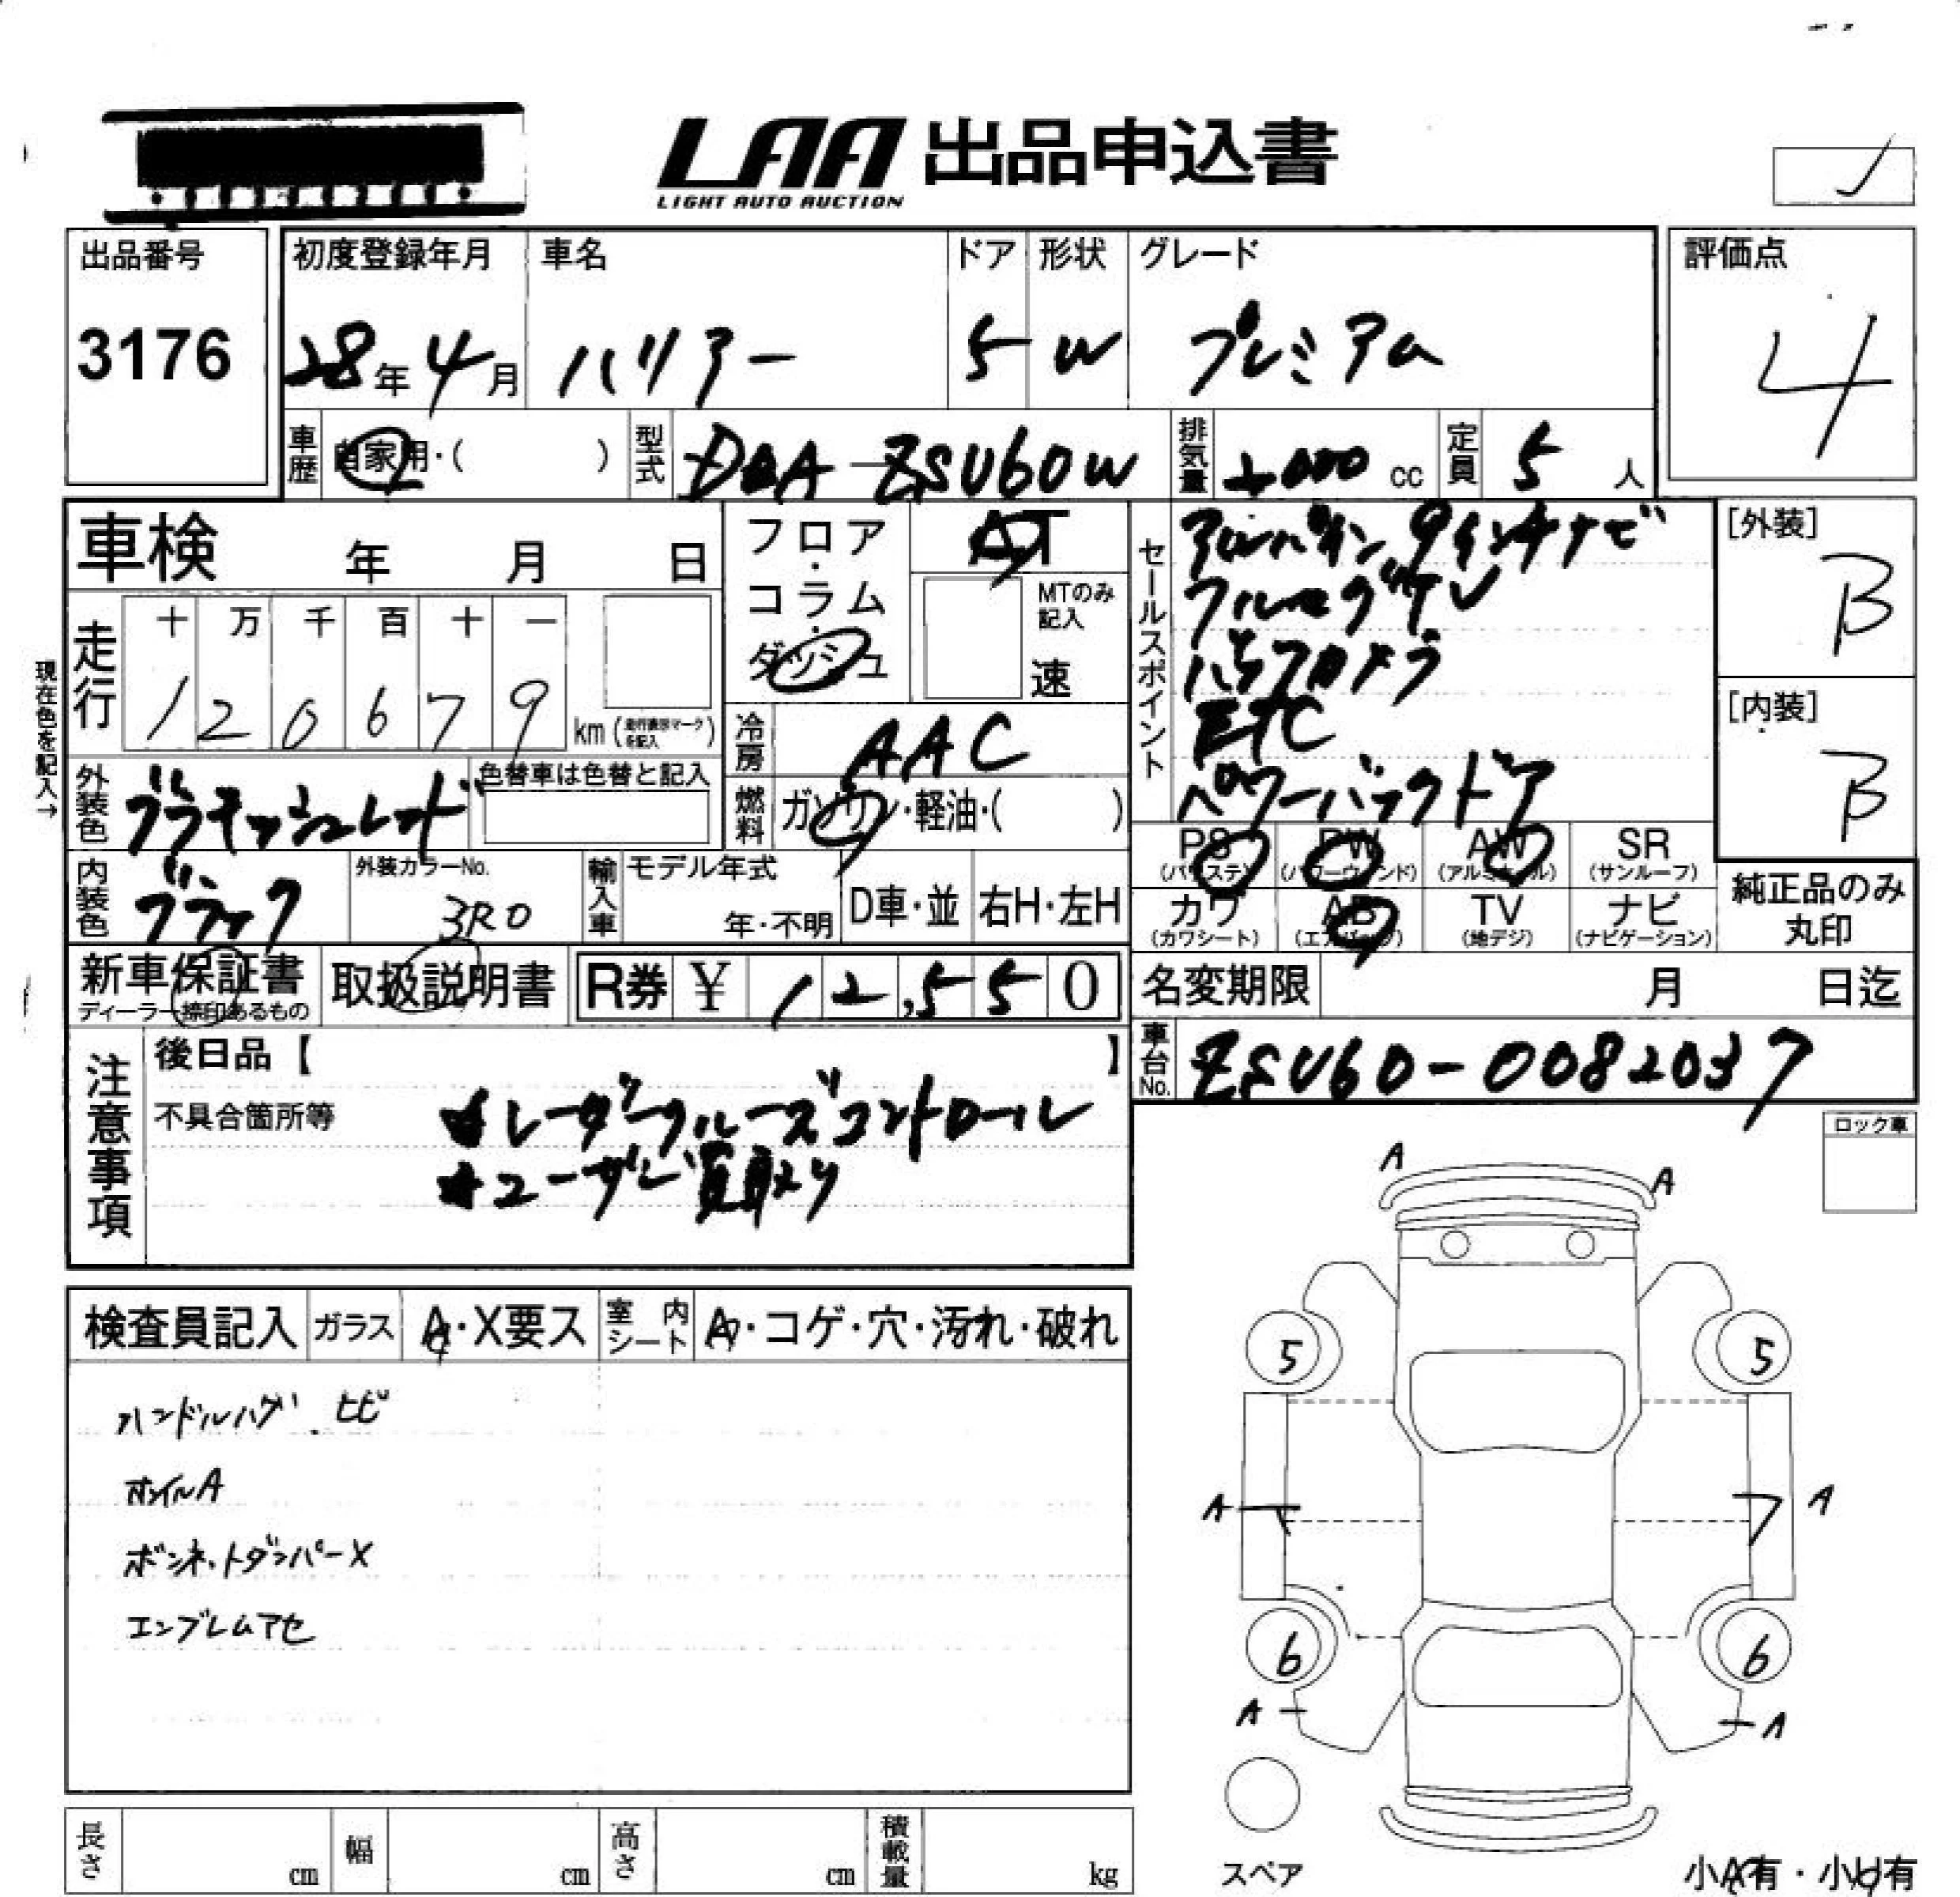 LAA 出品申込書
LIGHT AUTO AUCTION
出品番号
3176
初度登録年月
28年4月
車名
ハリアー
ドア
5
形状
W
グレード
プレミアム
評価点
4
車歴
自家用・( )
型式
DBA-ZSU60W
排気量
2000 cc
定員
5 人
車検 年 月 日
フロア・コラム・ダッシュ
AT
MTのみ記入
速
セールスポイント
アルパイン9インチナビ
フルセグTV
バックカメラ
ETC
パワーバックドア
[外装]
B
[内装]
B
現在色を記入→
走行
十 万 千 百 十 一
1 2 0 6 7 9
km (走行表示マークを記入)
冷房
AAC
外装色
ブラキッシュレッド
色替車は色替と記入
燃料
ガソリン・軽油・( )
PS (パワステ)
PW (パワーウィンド)
AW (アルミホイル)
SR (サンルーフ)
カワ (カワシート)
AB (エアバッグ)
TV (地デジ)
ナビ (ナビゲーション)
純正品のみ丸印
内装色
ブラック
外装カラーNo.
3R0
輸入車
モデル年式
年・不明
D車・並
右H・左H
新車保証書
ディーラー捺印あるもの
取扱説明書
R券 ¥ 12,550
名変期限 月 日迄
車台No.
ZSU60-0082037
注意事項
後日品【 】
不具合箇所等
★レーダークルーズコントロール
★ユーザー買取り
ロック車
検査員記入
ガラス
A・X要ス
室内シート
A・コゲ・穴・汚れ・破れ
ハンドルハゲ、ヒビ
ホイルA
ボンネットダンパーX
エンブレムアセ
A
A
5
5
A
A
6
6
A
A
スペア
小A有・小U有
長さ cm
幅 cm
高さ cm
積載量 kg